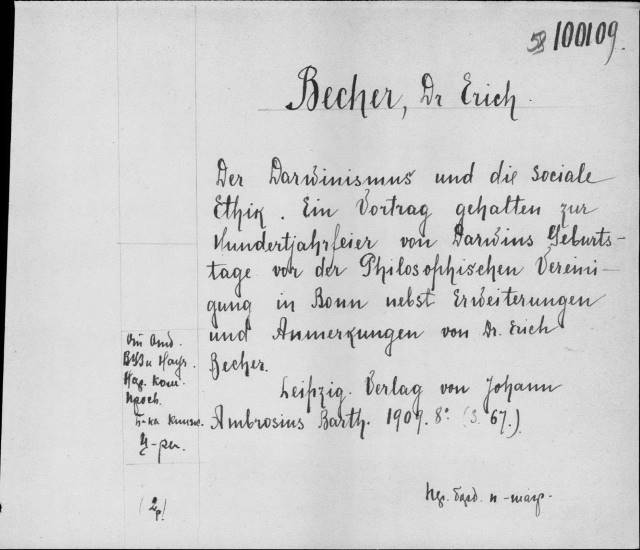 100109.
Becher, Dr Erich.
Der Darwinismus und die sociale
Ethik. Ein Vortrag gehalten zur
Hundertjahrfeier von Darwins Geburts-
tage vor der Philosophischen Vereini-
gung in Bonn nebst Erweiterungen
und Anmerkungen von Dr. Erich
Becher.
Leipzig. Verlag von Johann
Ambrosius Barth. 1909. 8° (S. 67.)
Нар. Ком.
Просв.
Б-ка Книж.
Ц-ри.
(2р)